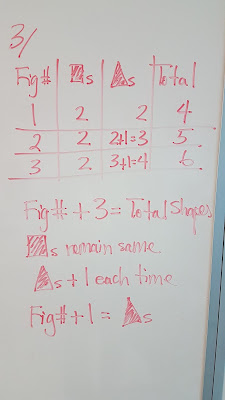 3/
Fig# ■s ▲s Total
1 2 2 4
2 2 2+1=3 5
3 2 3+1=4 6
Fig# + 3 = Total Shapes
■s remain same
▲s + 1 each time
Fig# + 1 = ▲s